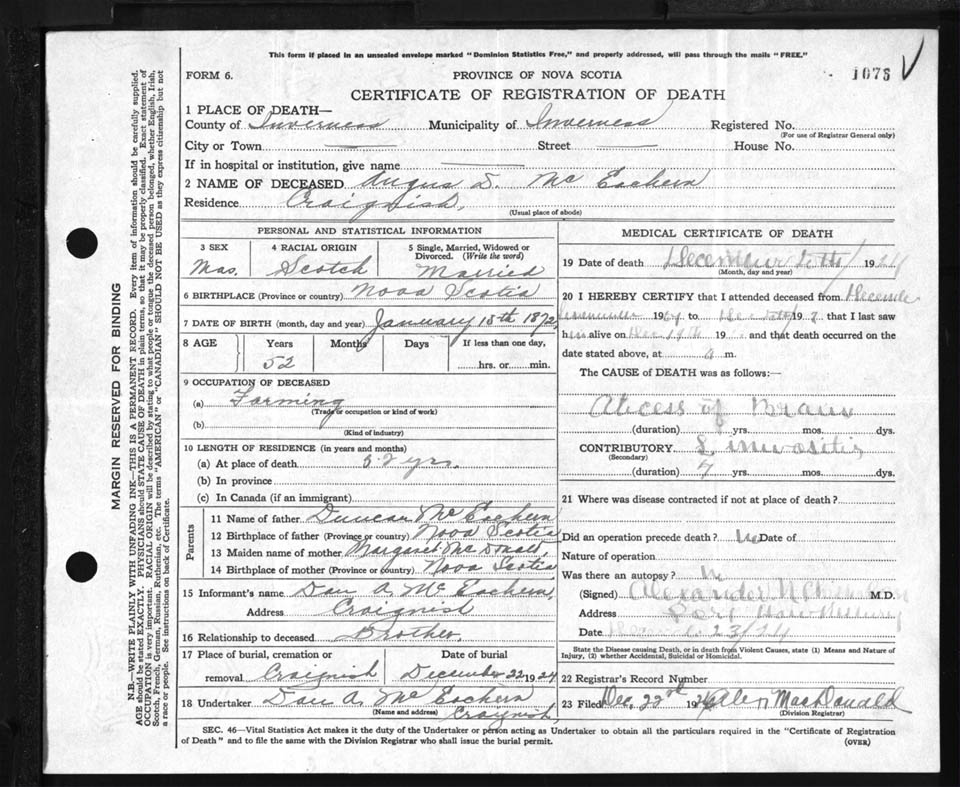 This form if placed in an unsealed envelope marked "Dominion Statistics Free," and properly addressed, will pass through the mails "FREE."
FORM 6.
PROVINCE OF NOVA SCOTIA
CERTIFICATE OF REGISTRATION OF DEATH
1 PLACE OF DEATH—
County of Inverness Municipality of Inverness Registered No.
(For use of Registrar General only)
City or Town Street House No.
If in hospital or institution, give name
2 NAME OF DECEASED Angus D. McEachern
Residence Craignish.
(Usual place of abode)
PERSONAL AND STATISTICAL INFORMATION
3 SEX Mas.
4 RACIAL ORIGIN Scotch
5 Single, Married, Widowed or Divorced. (Write the word) Married
6 BIRTHPLACE (Province or country) Nova Scotia
7 DATE OF BIRTH (month, day and year) January 15th 1872
8 AGE Years Months Days If less than one day,
52 hrs. or min.
9 OCCUPATION OF DECEASED
(a) Farming
(Trade or occupation or kind of work)
(b)
(Kind of industry)
10 LENGTH OF RESIDENCE (in years and months)
(a) At place of death 52 yrs.
(b) In province
(c) In Canada (if an immigrant)
Parents
11 Name of father Duncan McEachern
12 Birthplace of father (Province or country) Nova Scotia
13 Maiden name of mother Margaret McDonald,
14 Birthplace of mother (Province or country) Nova Scotia
15 Informant's name Dan A. McEachern,
Address Craignish
16 Relationship to deceased Brother,
17 Place of burial, cremation or removal Craignish
Date of burial December 22 1924
18 Undertaker Dan A. McEachern
(Name and address) Craignish,
MEDICAL CERTIFICATE OF DEATH
19 Date of death December 1924
(Month, day and year)
20 I HEREBY CERTIFY that I attended deceased from
19 to Dec 19 that I last saw
him alive on Dec 19th 19 and that death occurred on the
date stated above, at a m.
The CAUSE OF DEATH was as follows:—
Abcess of Brain
(duration) yrs. mos. dys.
CONTRIBUTORY
(Secondary)
(duration) 7 yrs. mos. dys.
21 Where was disease contracted if not at place of death?
Did an operation precede death? No Date of
Nature of operation
Was there an autopsy?
(Signed) Alexander M.D.
Address Port Hawkesbury
Date 23/24
State the Disease causing Death, or in death from Violent Causes, state (1) Means and Nature of Injury, (2) whether Accidental, Suicidal or Homicidal.
22 Registrar's Record Number
23 Filed Dec. 22nd 192 Alex MacDonald
(Division Registrar)
SEC. 46—Vital Statistics Act makes it the duty of the Undertaker or person acting as Undertaker to obtain all the particulars required in the "Certificate of Registration
of Death" and to file the same with the Division Registrar who shall issue the burial permit.
(OVER)
MARGIN RESERVED FOR BINDING
N.B.—WRITE PLAINLY WITH UNFADING INK—THIS IS A PERMANENT RECORD. Every item of information should be carefully supplied.
AGE should be stated EXACTLY. PHYSICIANS should STATE CAUSE OF DEATH in plain terms, so that it may be properly classified. Exact statement of
OCCUPATION is very important. RACIAL ORIGIN will be described by stating to what people or tongue the deceased person belonged, whether English, Irish,
Scotch, French, German, Russian, Ruthenian, etc. The terms "AMERICAN" or "CANADIAN" SHOULD NOT BE USED as they express citizenship but not
a race or people. See instructions on back of Certificate.